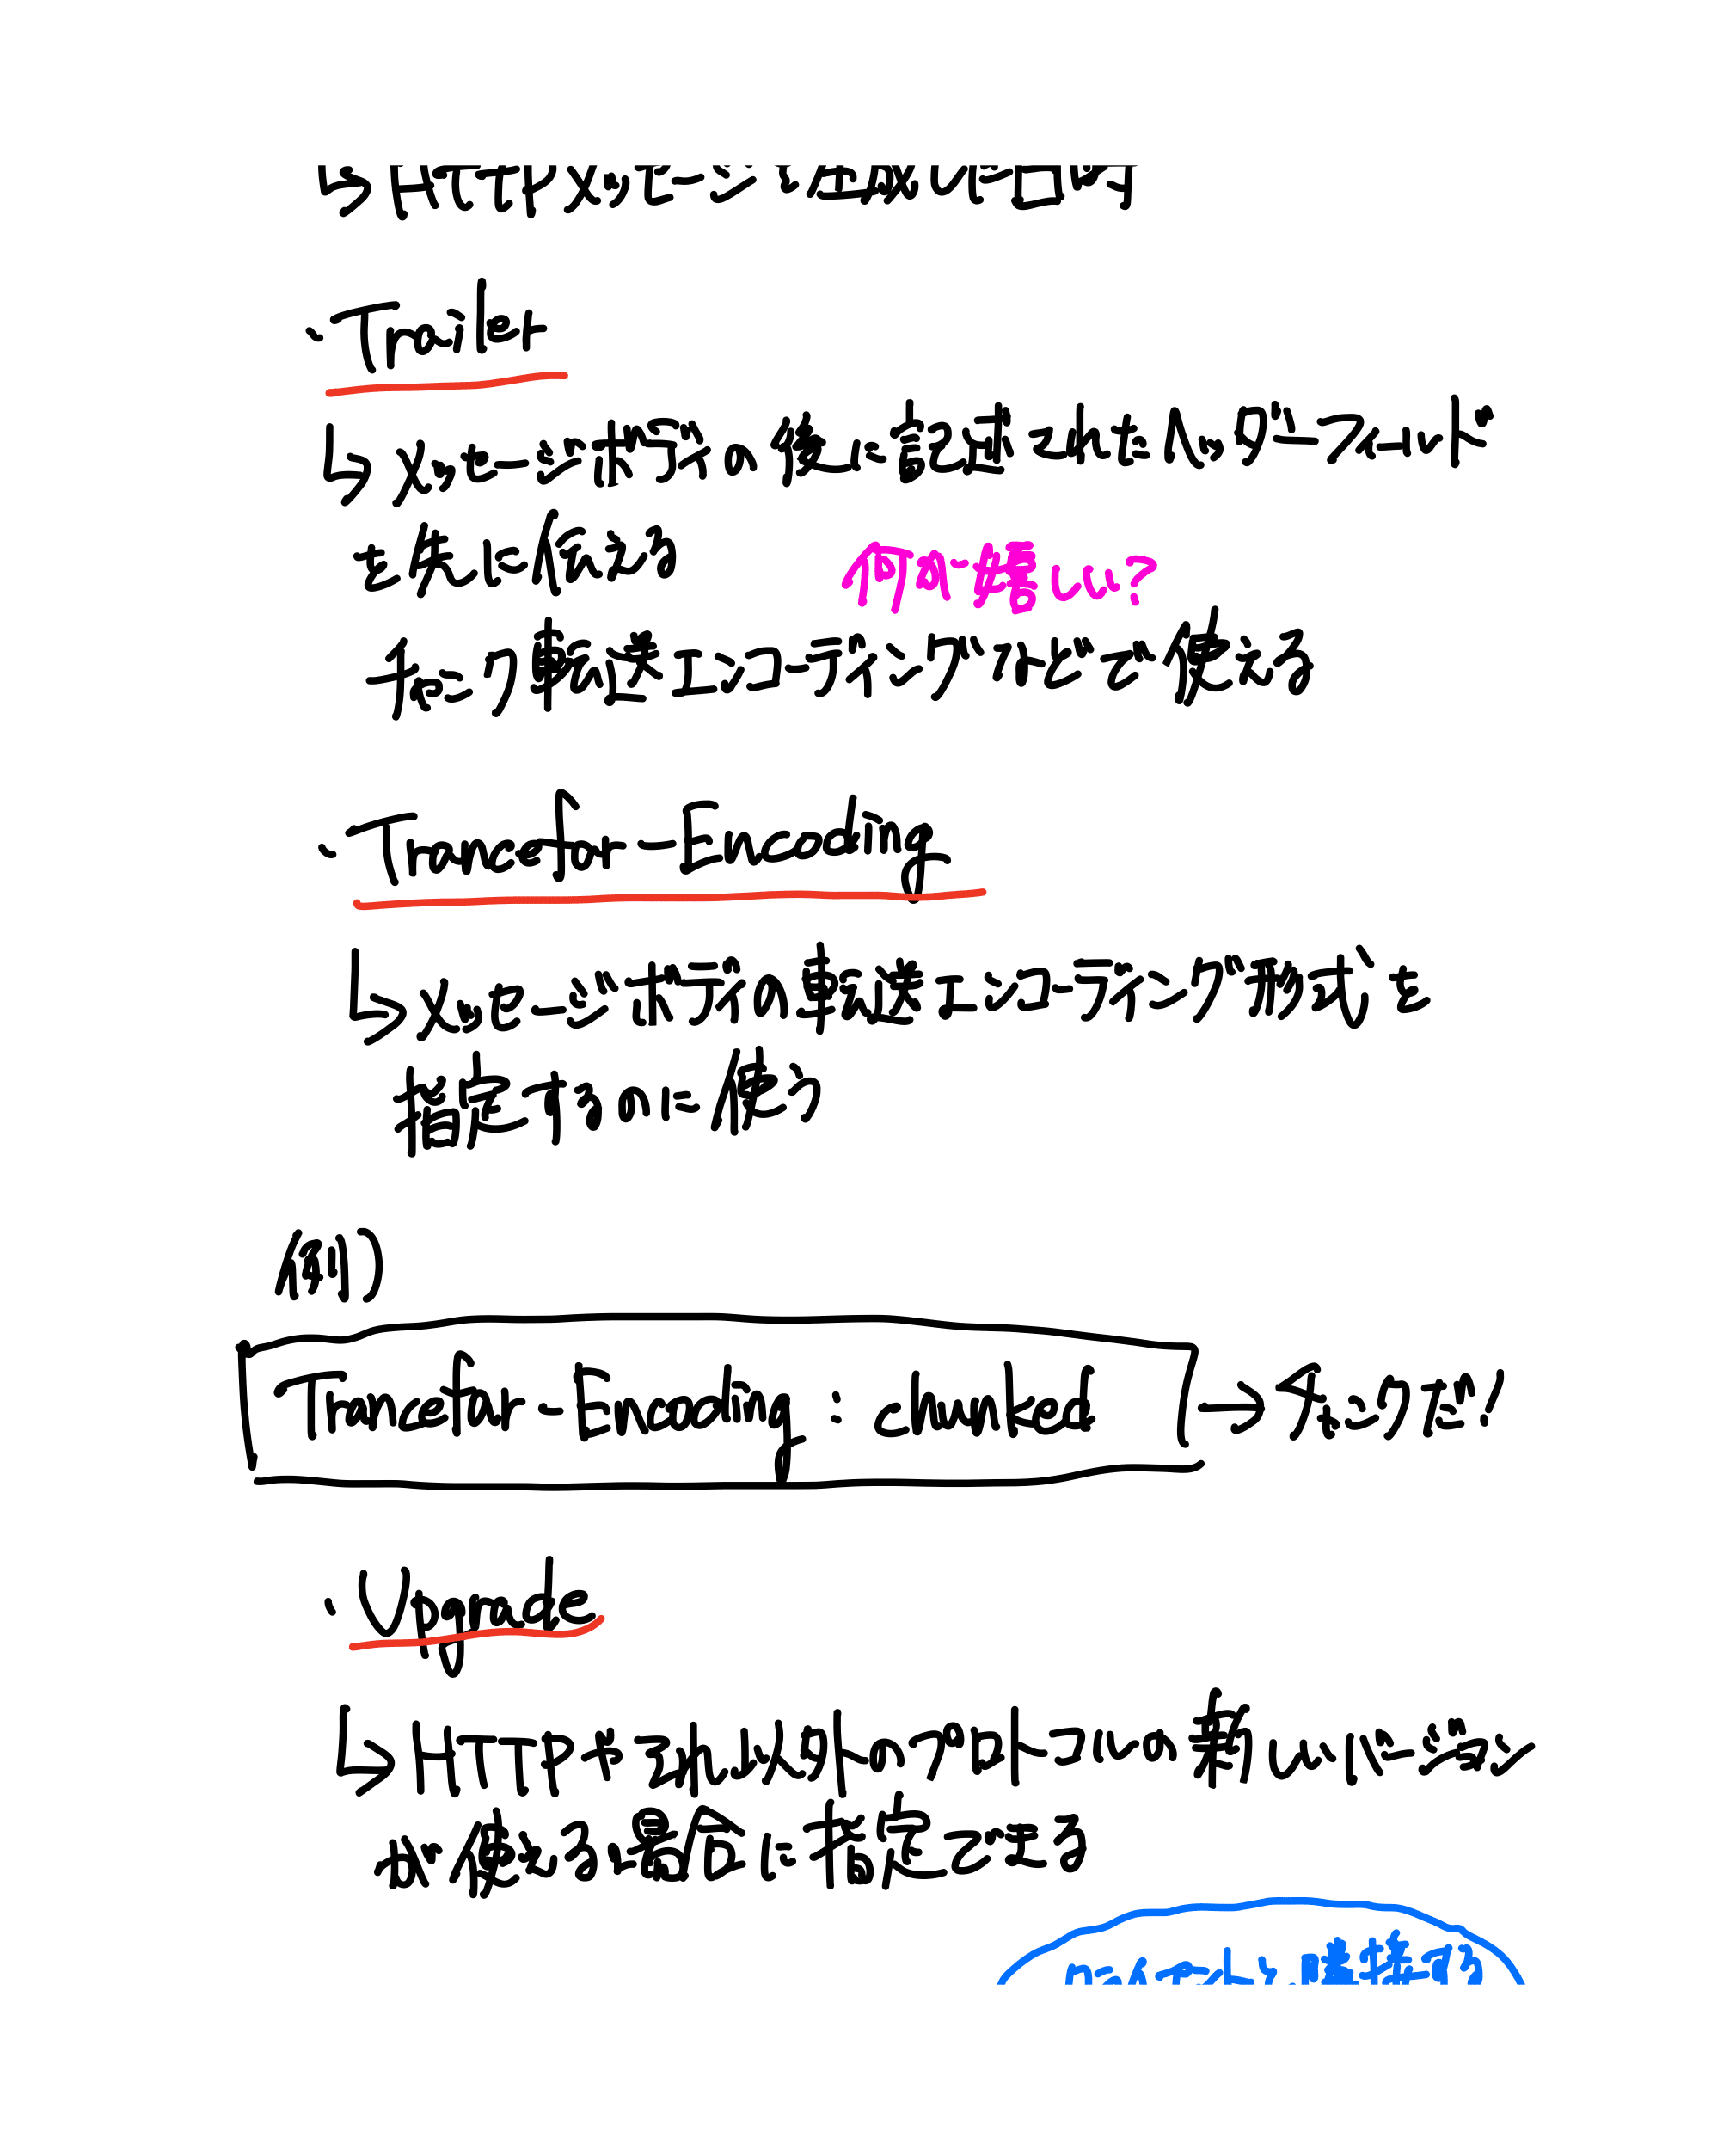 ・Trailer
↳メッセージボディの後に記述されたヘッダーフィールド
を先に伝える
何が嬉しい?
チャンク転送エンコーディングなどで使える
・Trancefar-Encoding
↳メッセージボディの転送エンコーディング形式を
指定するのに使う
例)
Trancefar-Encoding : chunked →チャンクだ!
・Upgrade
↳HTTPやそれ以外のプロトコルの新しいバージョン
が使える場合に指定できる